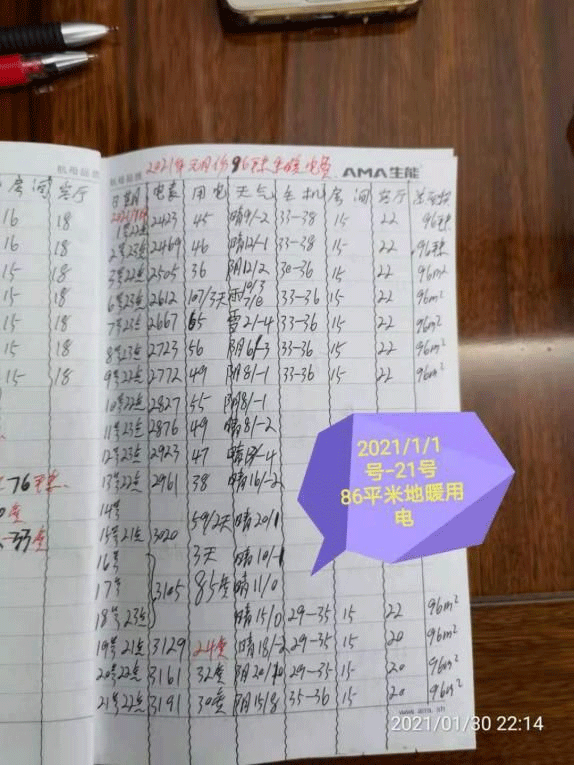 航母品质 AMA生能
2021年元月份96平米采暖电费
房间 客厅
日期 电表 用电 天气 主机 房间 客厅
2021/1/
16 18
1号22点 2423 45 晴9/-2 33-38 15 22 96平米
16 18
2号23点 2469 46 晴12/-1 33-38 15 22 96平米
15 18
3号22点 2505 36 阴12/2 30-36 15 22 96m²
15 18
6号23点 2612 107/3天 雨 33-36 15 22 96m²
15 18
7号23点 2667 55 雪2/-4 33-36 15 22 96m²
15 18
8号23点 2723 56 阴6/-3 33-36 15 22 96m²
15 18
9号22点 2772 49 阴8/-1 33-36 15 22 96m²
10号22点 2827 55 阴8/-1
11号23点 2876 49 晴8/-2
12号23点 2923 47
13号22点 2961 38 晴16/-2
76平米
14号
15号21点 3020 59/2天 晴20/1
16号 3天 晴10/-1
17号 3105 85度 晴11/0
18号23点 晴15/0 29-35 15 22 96m²
19号21点 3129 24度 晴18/-2 29-35 15 20 96m²
20号22点 3161 32度 阴20/10 29-35 15 20 96m²
21号22点 3191 30度 阴15/8 35-36 15 20 96m²
2021/1/1
号-21号
86平米地暖用
电
www.ama.sh
2021/01/30 22:14